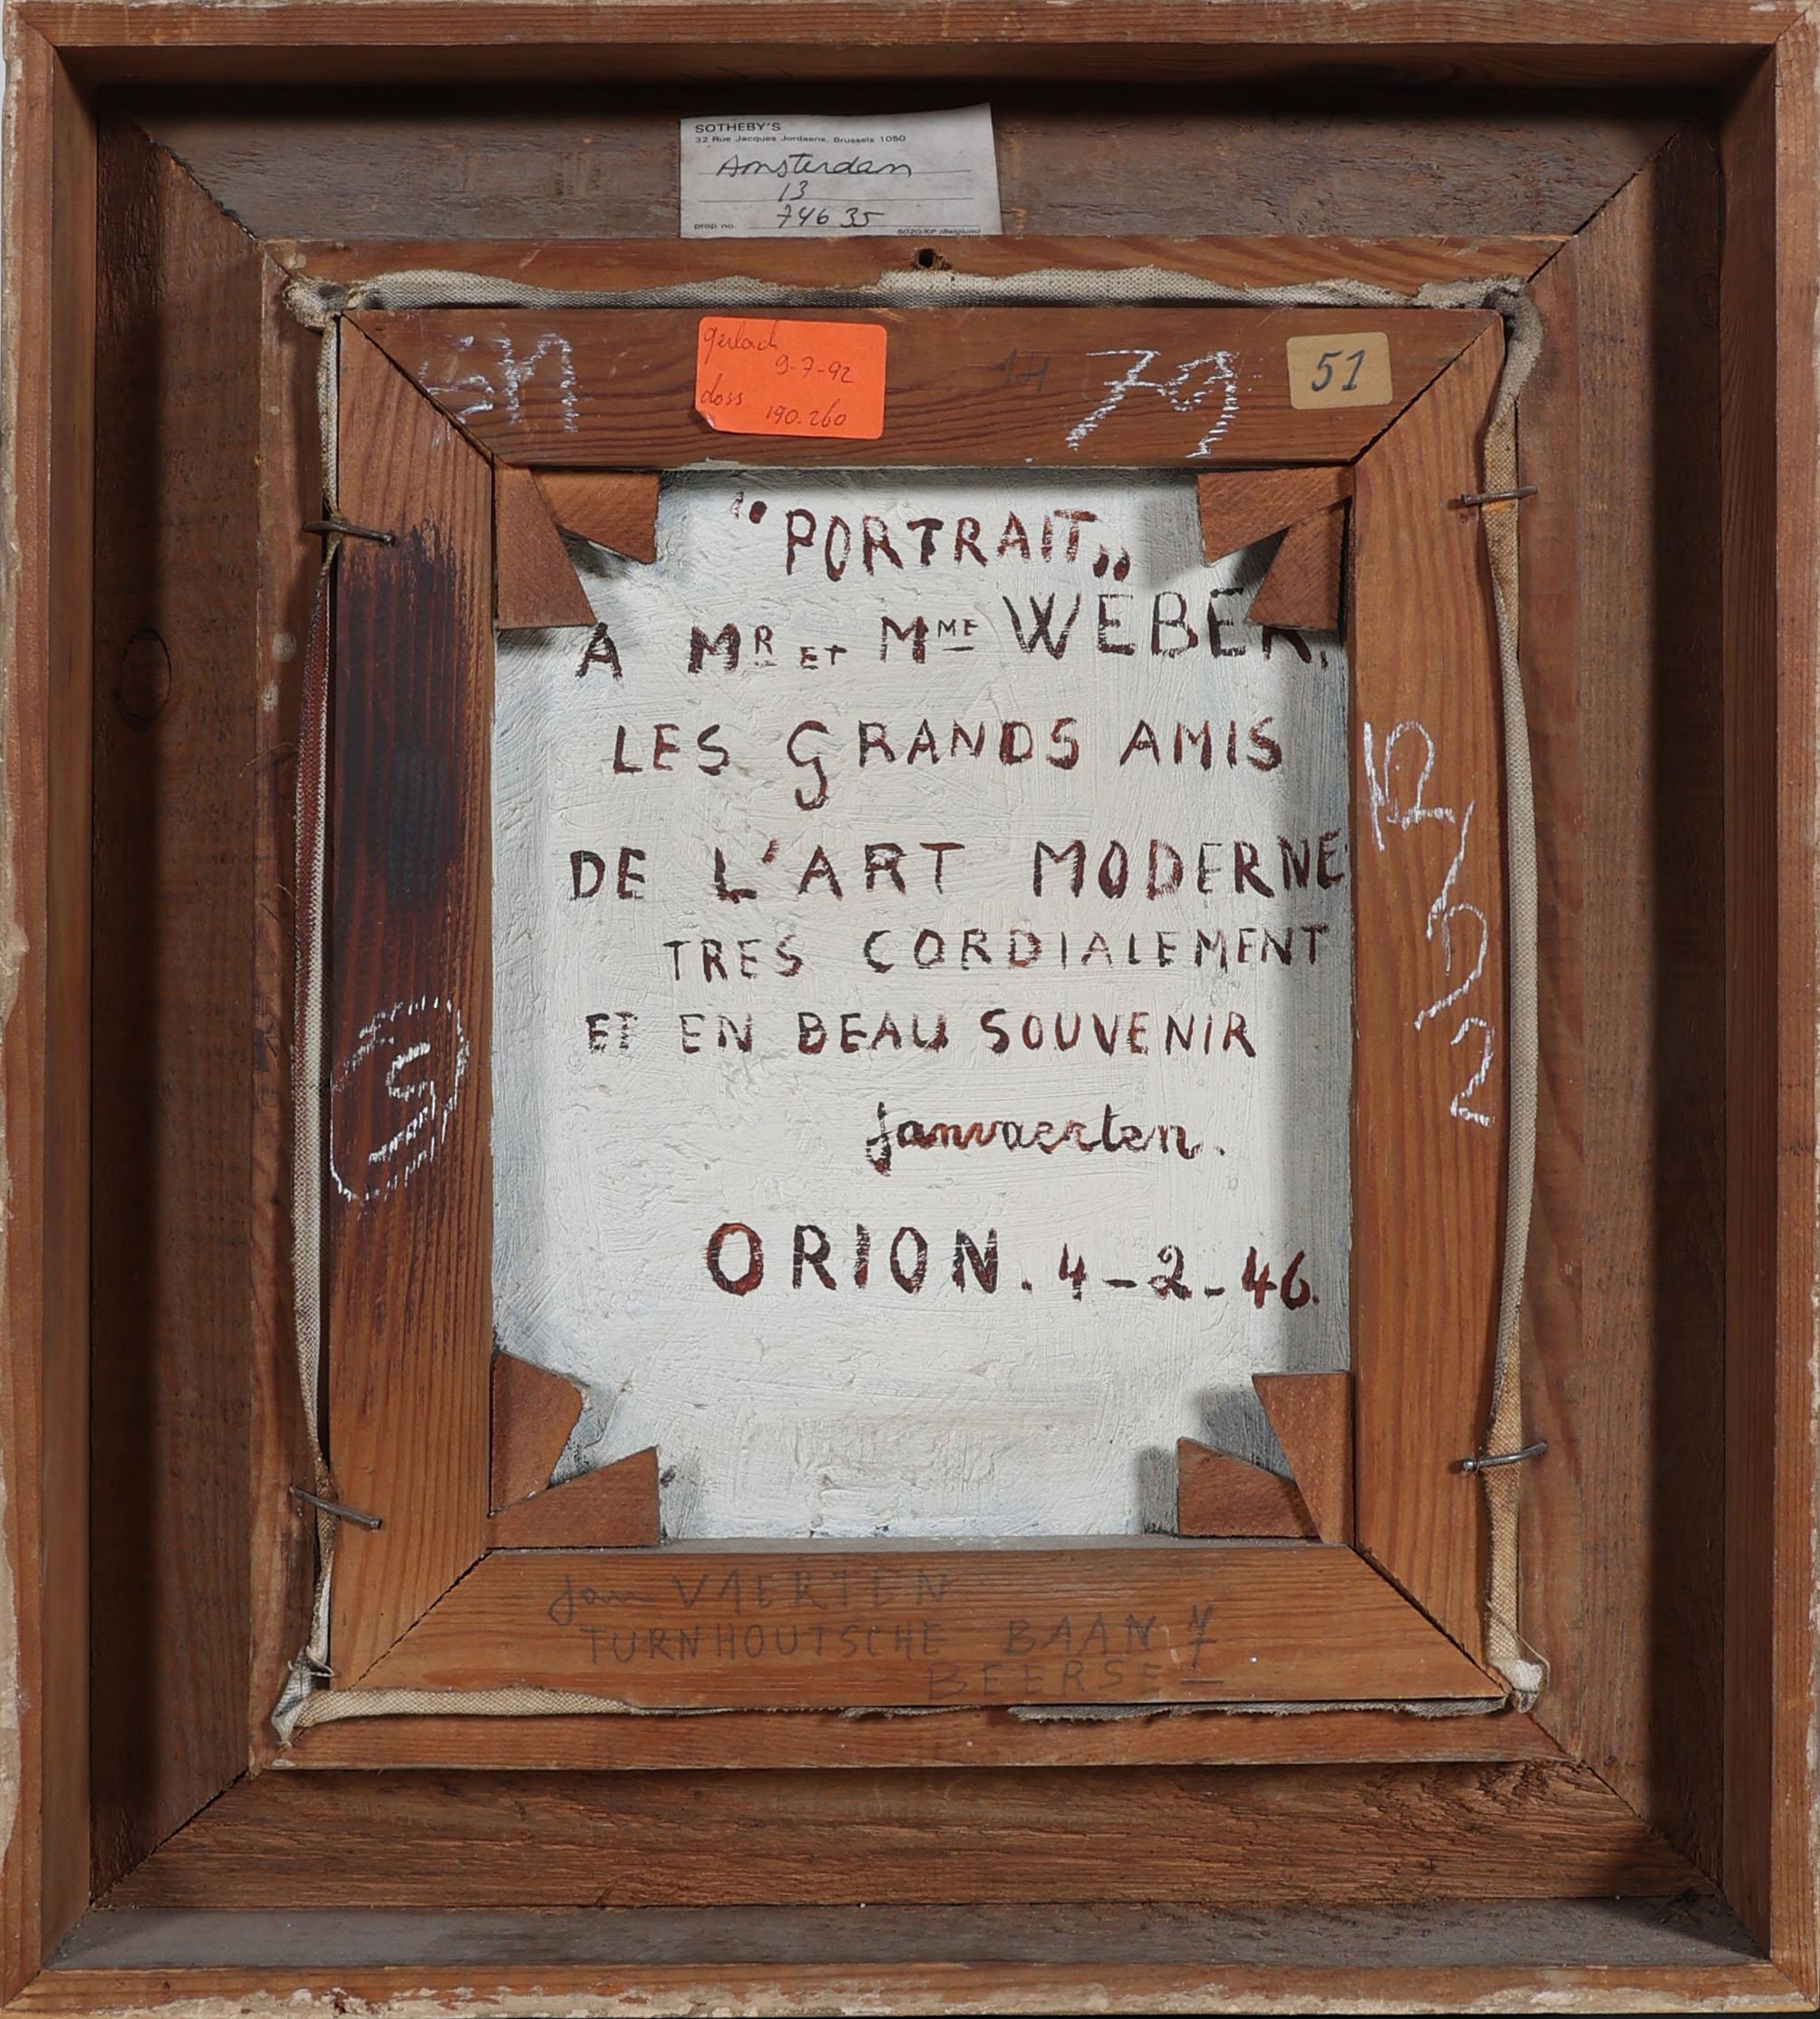 SOTHEBY'S
32 Rue Jacques Jordaens, Brussels 1050
Amsterdam
13
prop. no. 74635
6020/KP (Belgium)
gerlach
9-7-92
doss 190.260
79
51
"PORTRAIT„
A MR ET MME WEBER,
LES GRANDS AMIS
DE L'ART MODERNE
TRES CORDIALEMENT
ET EN BEAU SOUVENIR
Janvaerten.
ORION. 4-2-46.
Jan VAERTEN
TURNHOUTSCHE BAAN 7
BEERSE